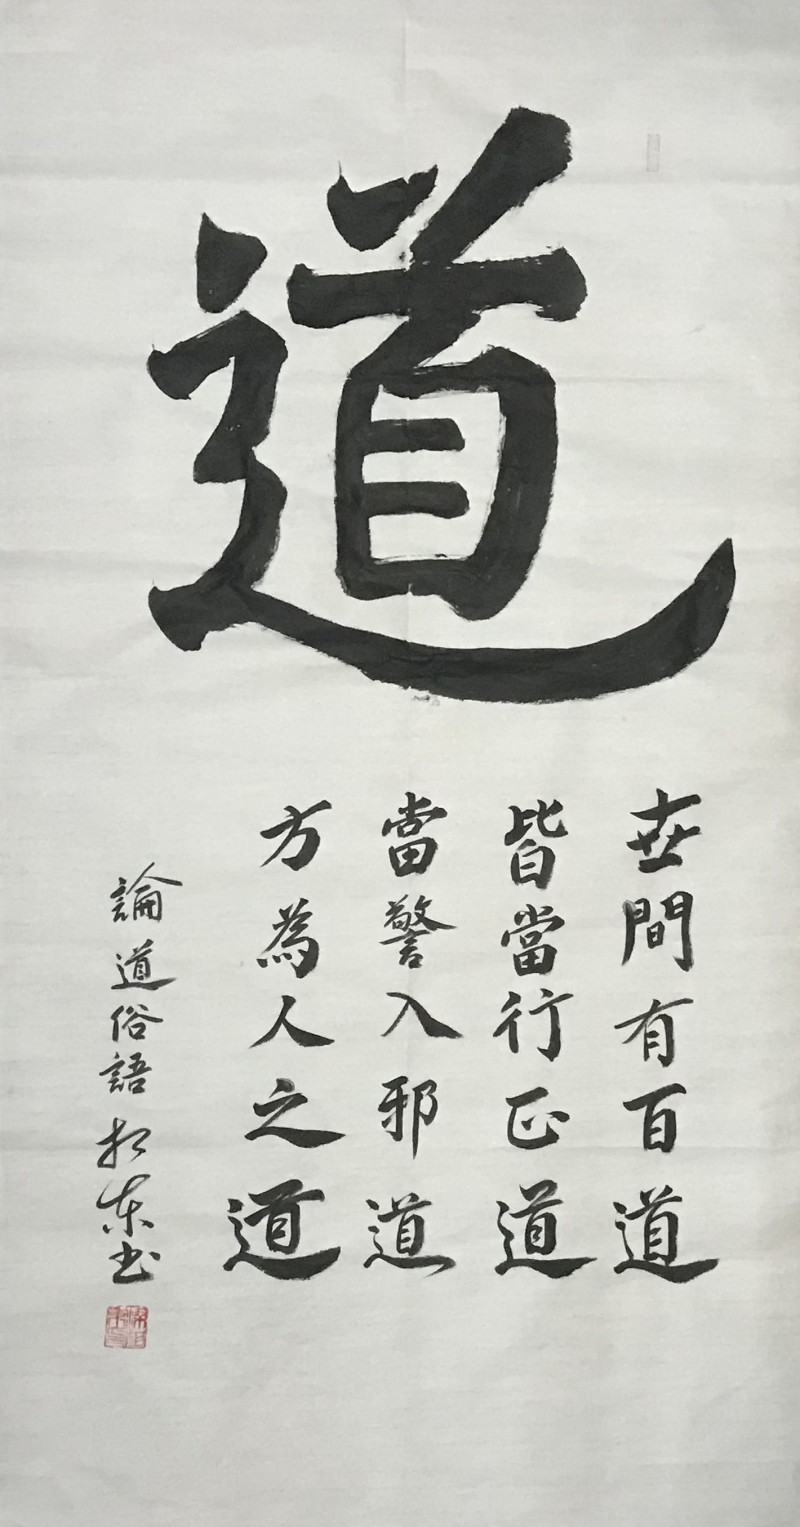 道
世間有百道
皆當行正道
當警入邪道
方為人之道
論道俗語 相東书